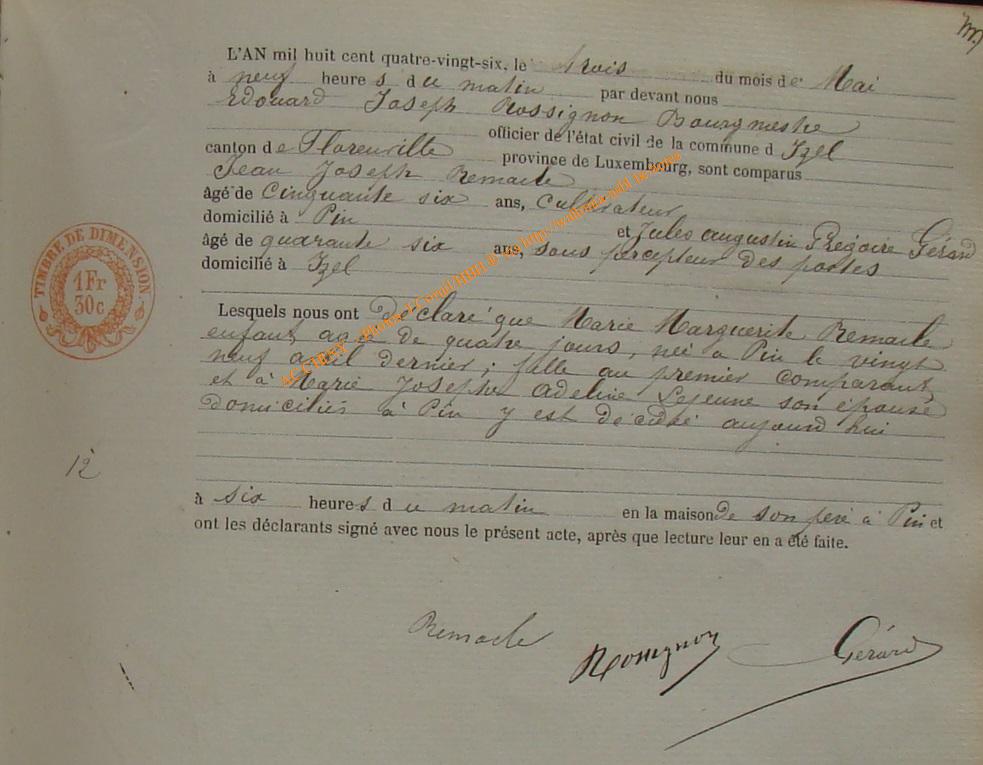 L'AN mil huit cent quatre-vingt-six, le trois du mois de Mai
à neuf heures du matin par devant nous
Edouard Joseph Rossignon Bourgmestre
officier de l'état civil de la commune d Izel
canton de Florenville province de Luxembourg, sont comparus
Jean Joseph Remacle
âgé de cinquante six ans, cultivateur
domicilié à Pin et Jules augustin Grégoire Gérard
âgé de quarante six ans, sous percepteur des postes
domicilié à Izel
Lesquels nous ont déclaré que Marie Marguerite Remacle
enfant, agé de quatre jours, née à Pin le vingt
neuf avril dernier; fille au premier comparant,
et à Marie Josephe Adeline Lejeune son épouse
domiciliés à Pin y est décédé aujourd hui
à six heures du matin en la maison de son père à Pin et
ont les déclarants signé avec nous le présent acte, après que lecture leur en a été faite.
Remacle
Rossignon
Gérard
TIMBRE DE DIMENSION
1 Fr
30c
12